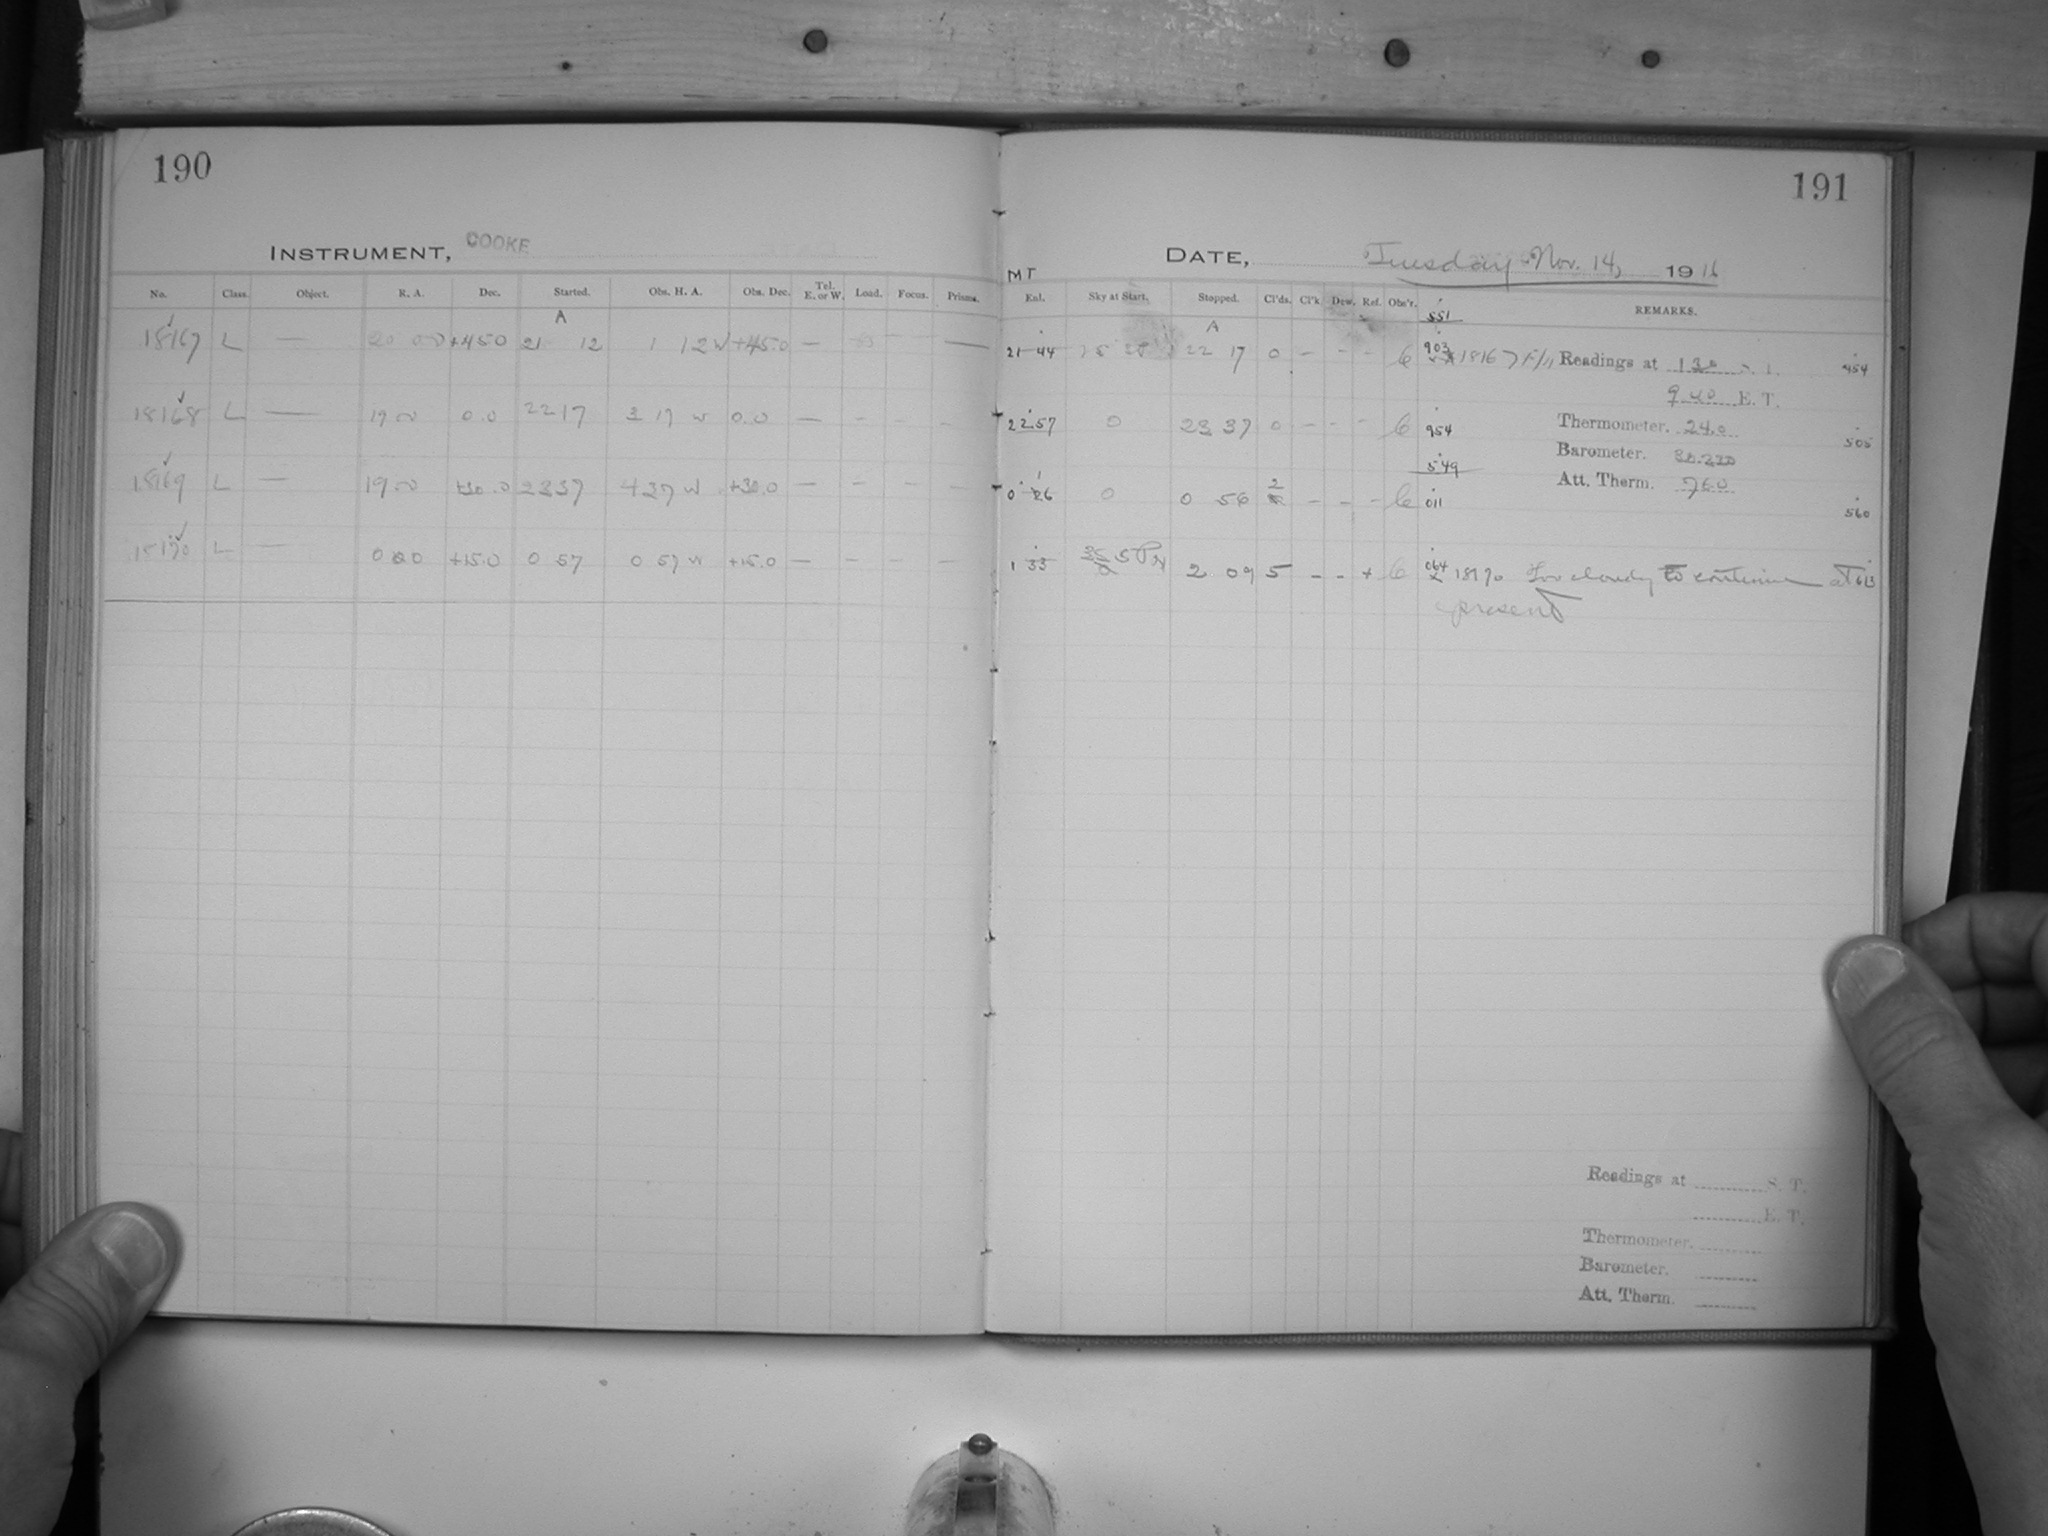 190
INSTRUMENT, COOKE
No. Class. Object. R. A. Dec. Started. Obs. H. A. Obs. Dec. Tel. E. or W. Load. Focus. Prisms.
A
18167 L — 20 00 +45.0 21 12 1 12 W +45.0 — —
18168 L — 19 00 0.0 22 17 3 17 W 0.0 — — — —
18169 L — 19 00 +30.0 23 37 4 37 W +30.0 — — — —
18170 L — 0 00 +15.0 0 57 0 57 W +15.0 — — — —
191
DATE, Tuesday Nov. 14, 1916
MT
Enl. Sky at Start. Stopped. Cl'ds. Cl'k. Dew. Ref. Obs'r. 551 REMARKS.
A
21 44 22 17 0 — — — 6 903 18167 Readings at 130
454
9 40 E. T.
22 57 0 23 37 0 — — — 6 954 Thermometer. 24.0
505
549 Barometer.
0 26 0 0 56 2 — — — 6 011 Att. Therm. 76.0
560
1 33 2 09 5 — — + 6 064 18170 Too cloudy to continue at 613
present
Readings at S. T.
E. T.
Thermometer.
Barometer.
Att. Therm.